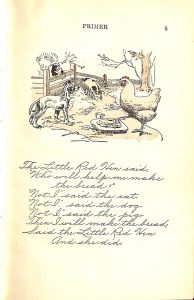 PRIMER 5
The Little Red Hen said,
"Who will help me make
the bread?"
"Not I" said the cat.
"Not I" said the dog.
"Not I" said the pig.
"Then I will make the bread,"
Said the Little Red Hen
And she did.